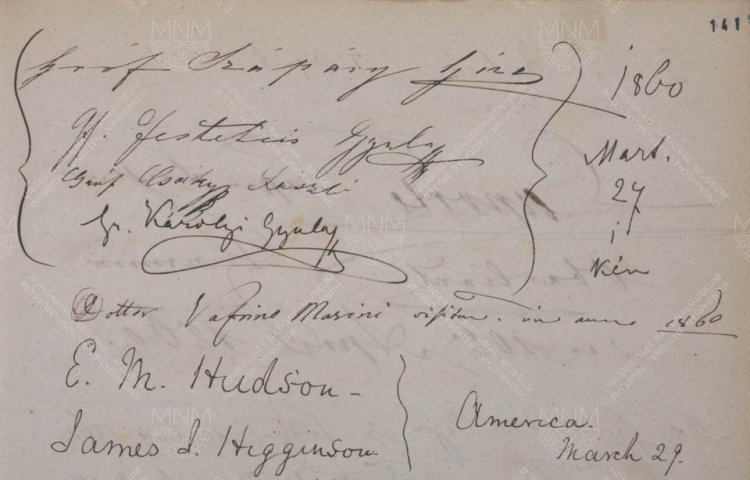 141
Gróf Szápáry Géza
Gf. Festetics Gyula
Gróf Csáky László
Gr. Károlyi Gyula
1860
Mart.
27
i
kén
Dottor Vafrino Masini in anno 1860
E. M. Hudson -
James J. Higginson.
America.
March 29.
MNM